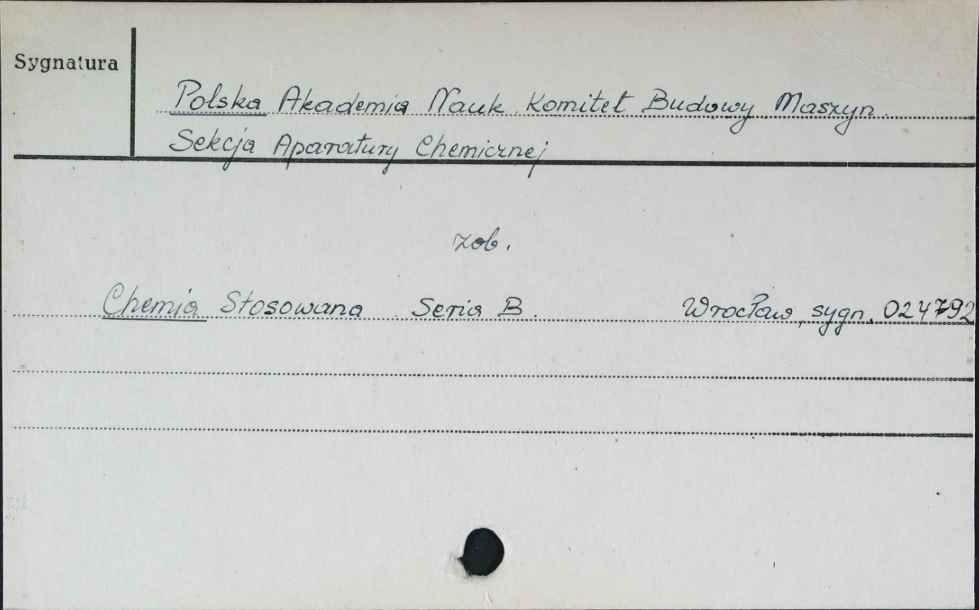 Sygnatura
Polska Akademia Nauk. Komitet Budowy Maszyn.
Sekcja Aparatury Chemicznej
zob.
Chemia Stosowana. Seria B. Wrocław, sygn. 024792